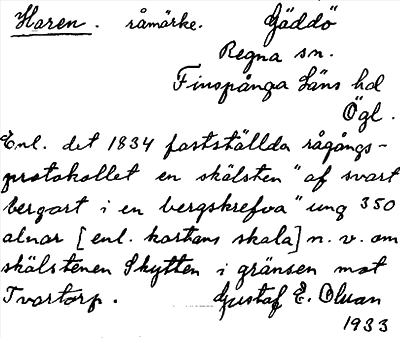 Haren. råmärke. Gäddö
Regna sn.
Finspånga Läns hd
Ögl.
Enl. det 1834 fastställda rågångs-
protokollet en skälsten "af svart
bergart i en bergskrefva" ung 350
alnar [enl. kartans skala] n. v. om
skälstenen Skytten i gränsen mot
Tvartorp. Gustaf E. Olsson
1933